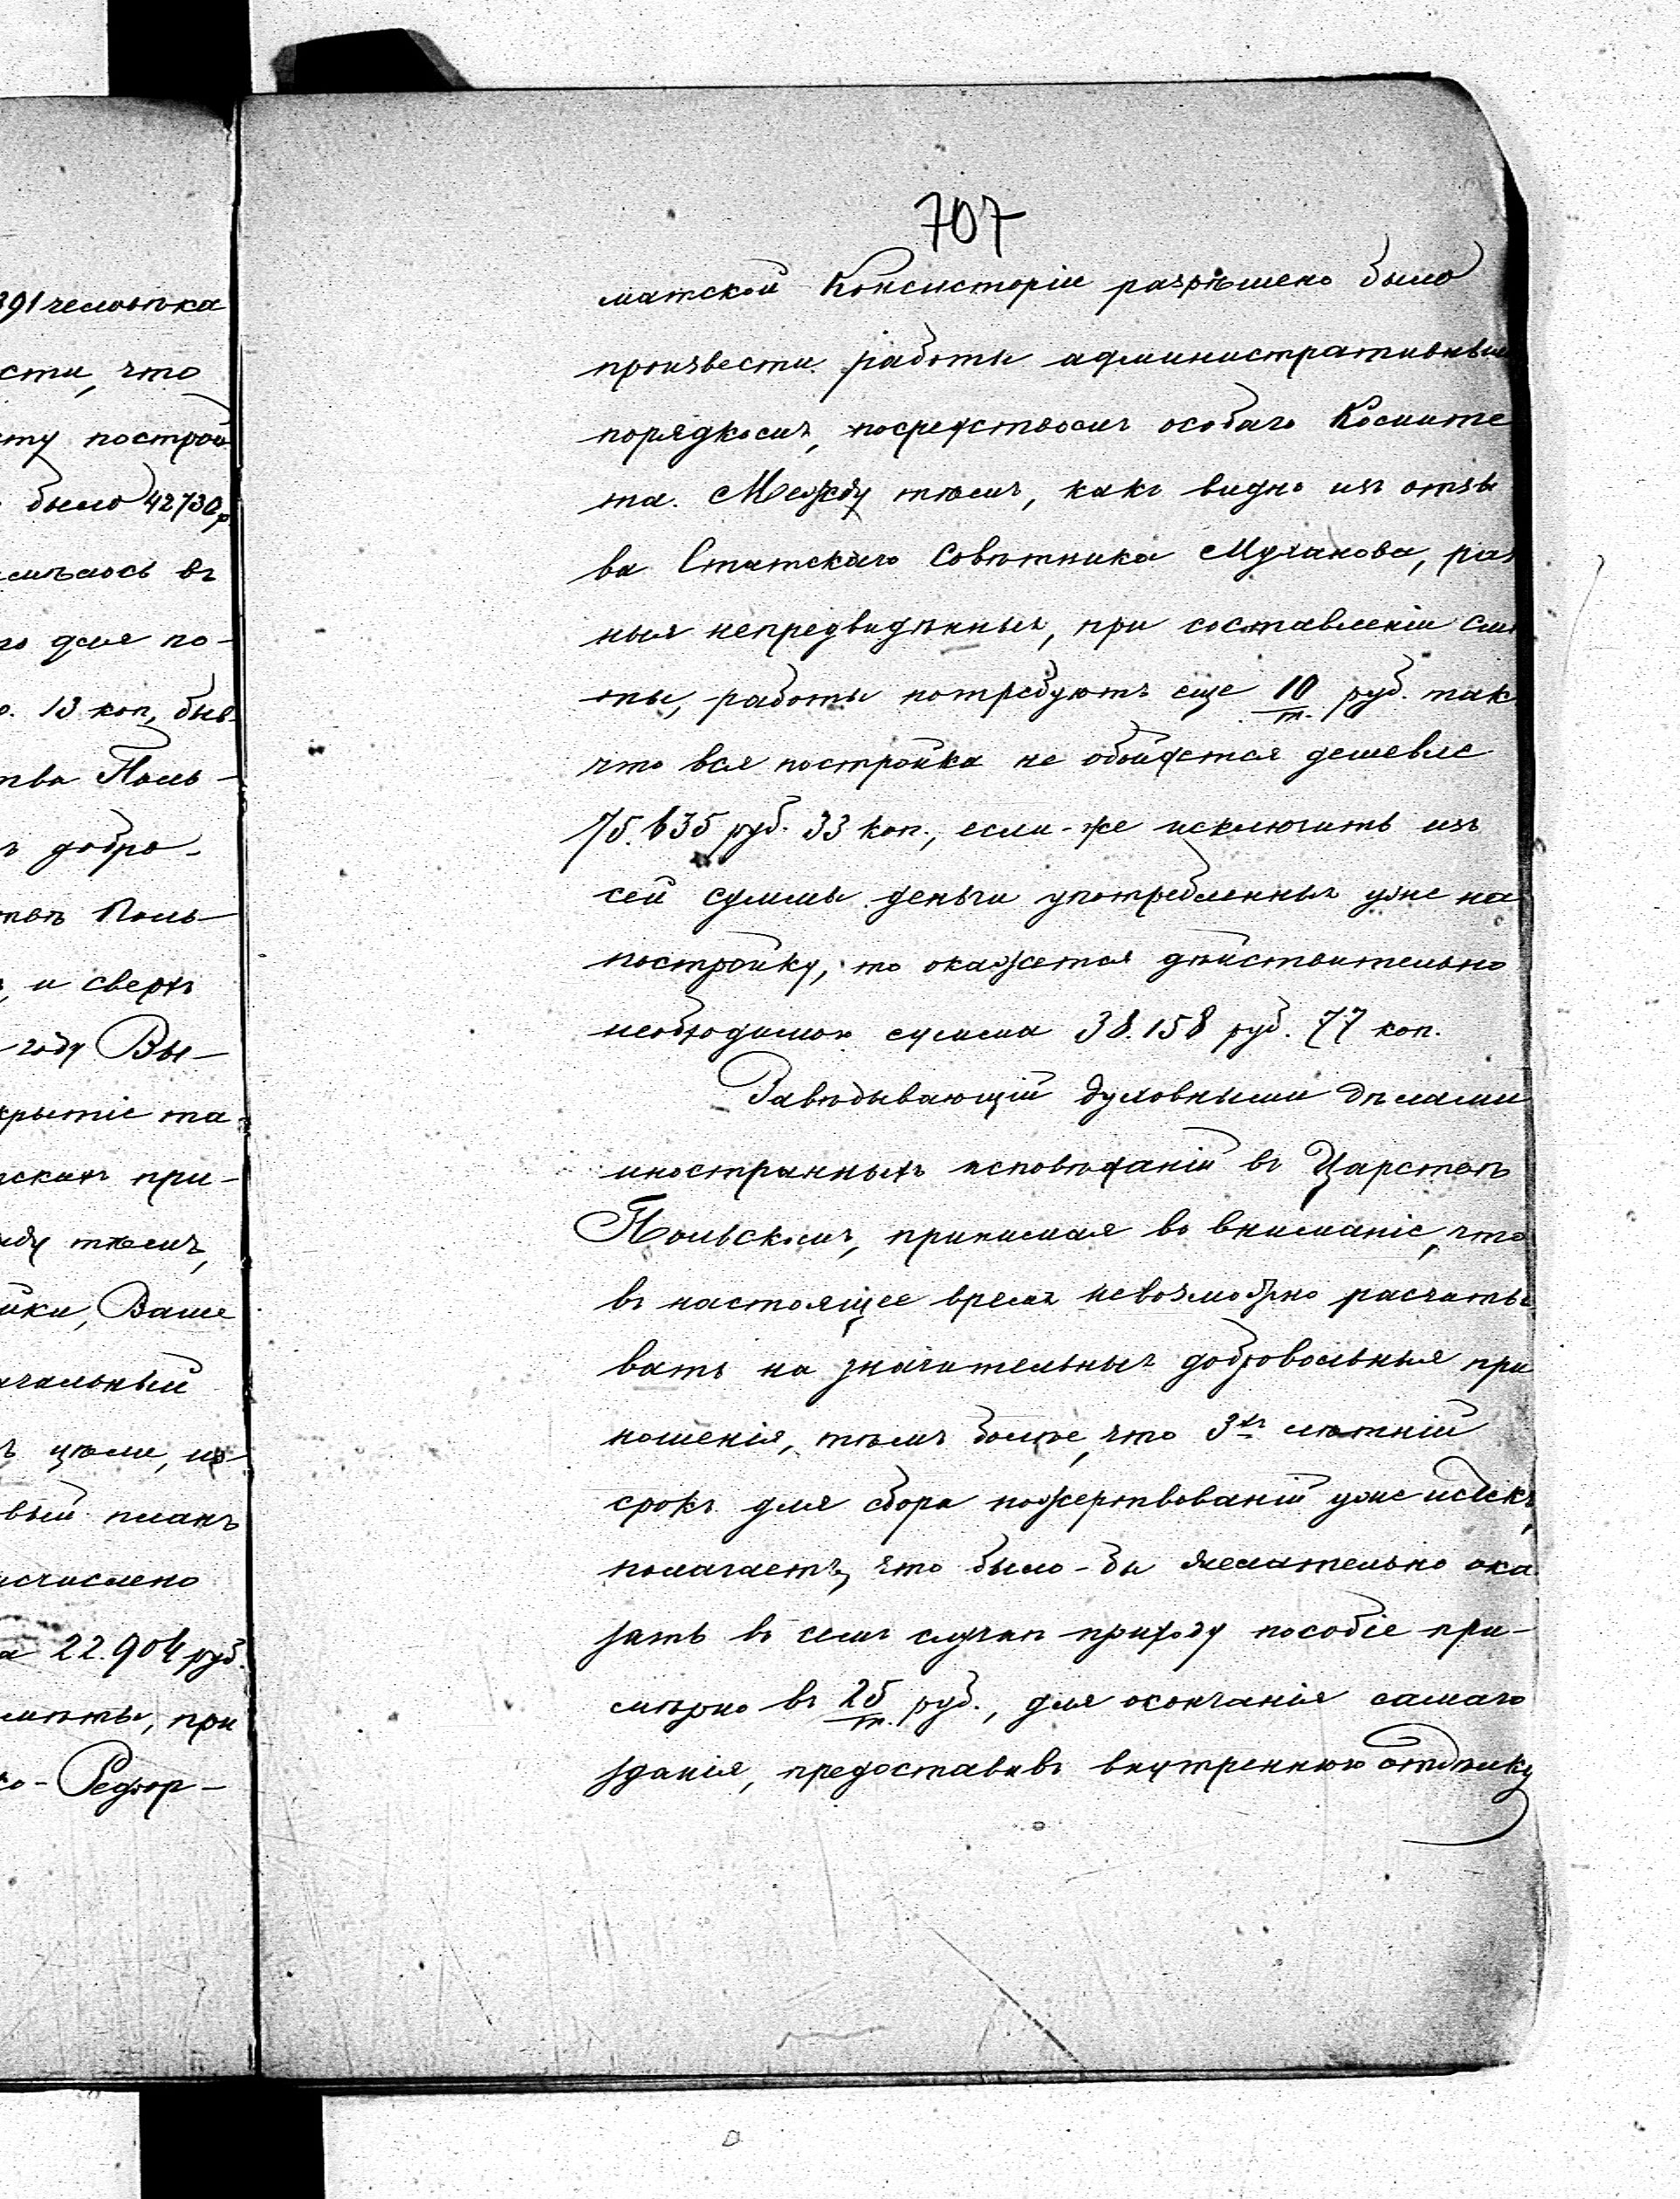 391 человѣка
сти, что
ту построй
было 42730 р
лось въ
по
13 коп, быв
тва Поль-
добро-
Поль-
, и сверхъ
году Вы-
крытіе та-
скихъ при-
жду тѣмъ,
йки, Ваше
ачальный
цѣли, из-
вый планъ
исчислено
а 22.904 руб.
смѣты, при
ко-Рефор-
707
матской Консисторіи разрѣшено было
произвести работы административнымъ
порядкомъ, посредствомъ особаго Комите
та. Между тѣмъ, какъ видно изъ отзы
ва Статскаго Совѣтника Муханова, раз
ныя непредвидѣнныя, при составленіи смѣ
ты, работы потребуютъ еще 10/т. руб. такъ
что вся постройка не обойдется дешевле
75.635 руб. 33 коп., если-же исключить изъ
сей суммы деньги употребленныя уже на
постройку, то окажется дѣйствительно
необходимою сумма 38.158 руб. 77 коп.
Завѣдывающій духовными дѣлами
иностранныхъ исповѣданій въ Царствѣ
Польскомъ, принимая во вниманіе, что
въ настоящее время невозможно расчиты
вать на значительныя добровольныя при
ношенія, тѣмъ болѣе, что 3хъ лѣтній
срокъ для сбора пожертвованій уже истекъ,
полагаетъ, что было-бы желательно ока
зать въ семъ случаѣ приходу пособіе при-
мѣрно въ 25/т. руб., для окончанія самаго
зданія, предоставивъ внутреннюю отдѣлку